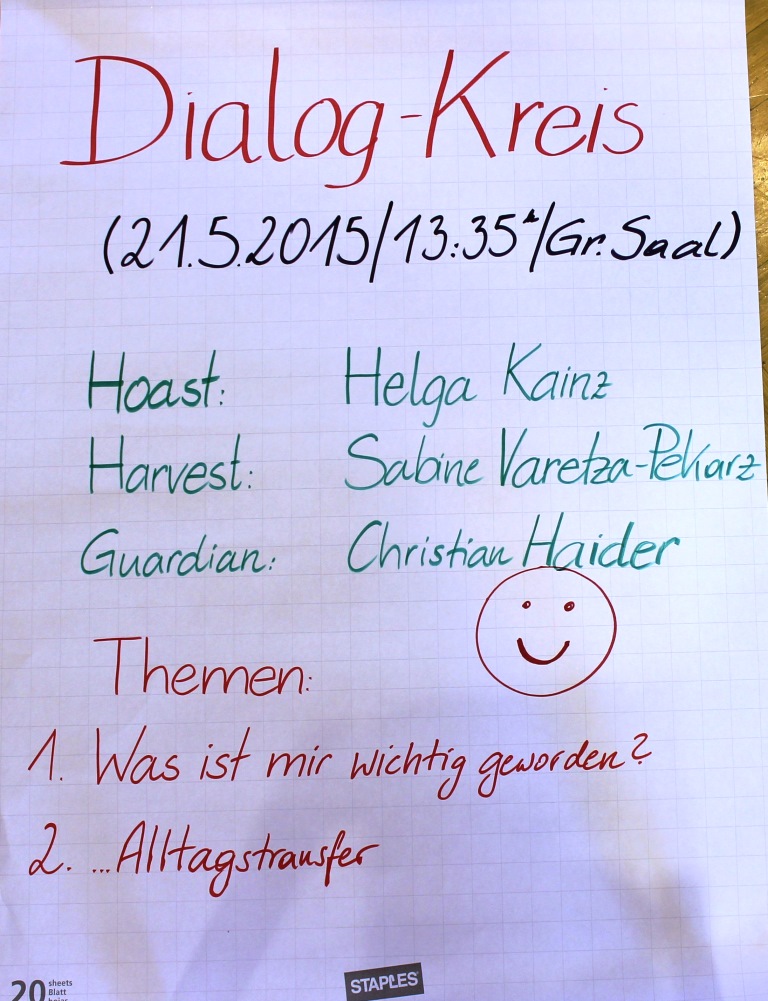 Dialog-Kreis
(21.5.2015/13:35h/Gr. Saal)
Hoast: Helga Kainz
Harvest: Sabine Varetza-Pekarz
Guardian: Christian Haider
Themen:
1. Was ist mir wichtig geworden?
2. ...Alltagstransfer
20 sheets
Blatt
hojas
STAPLES